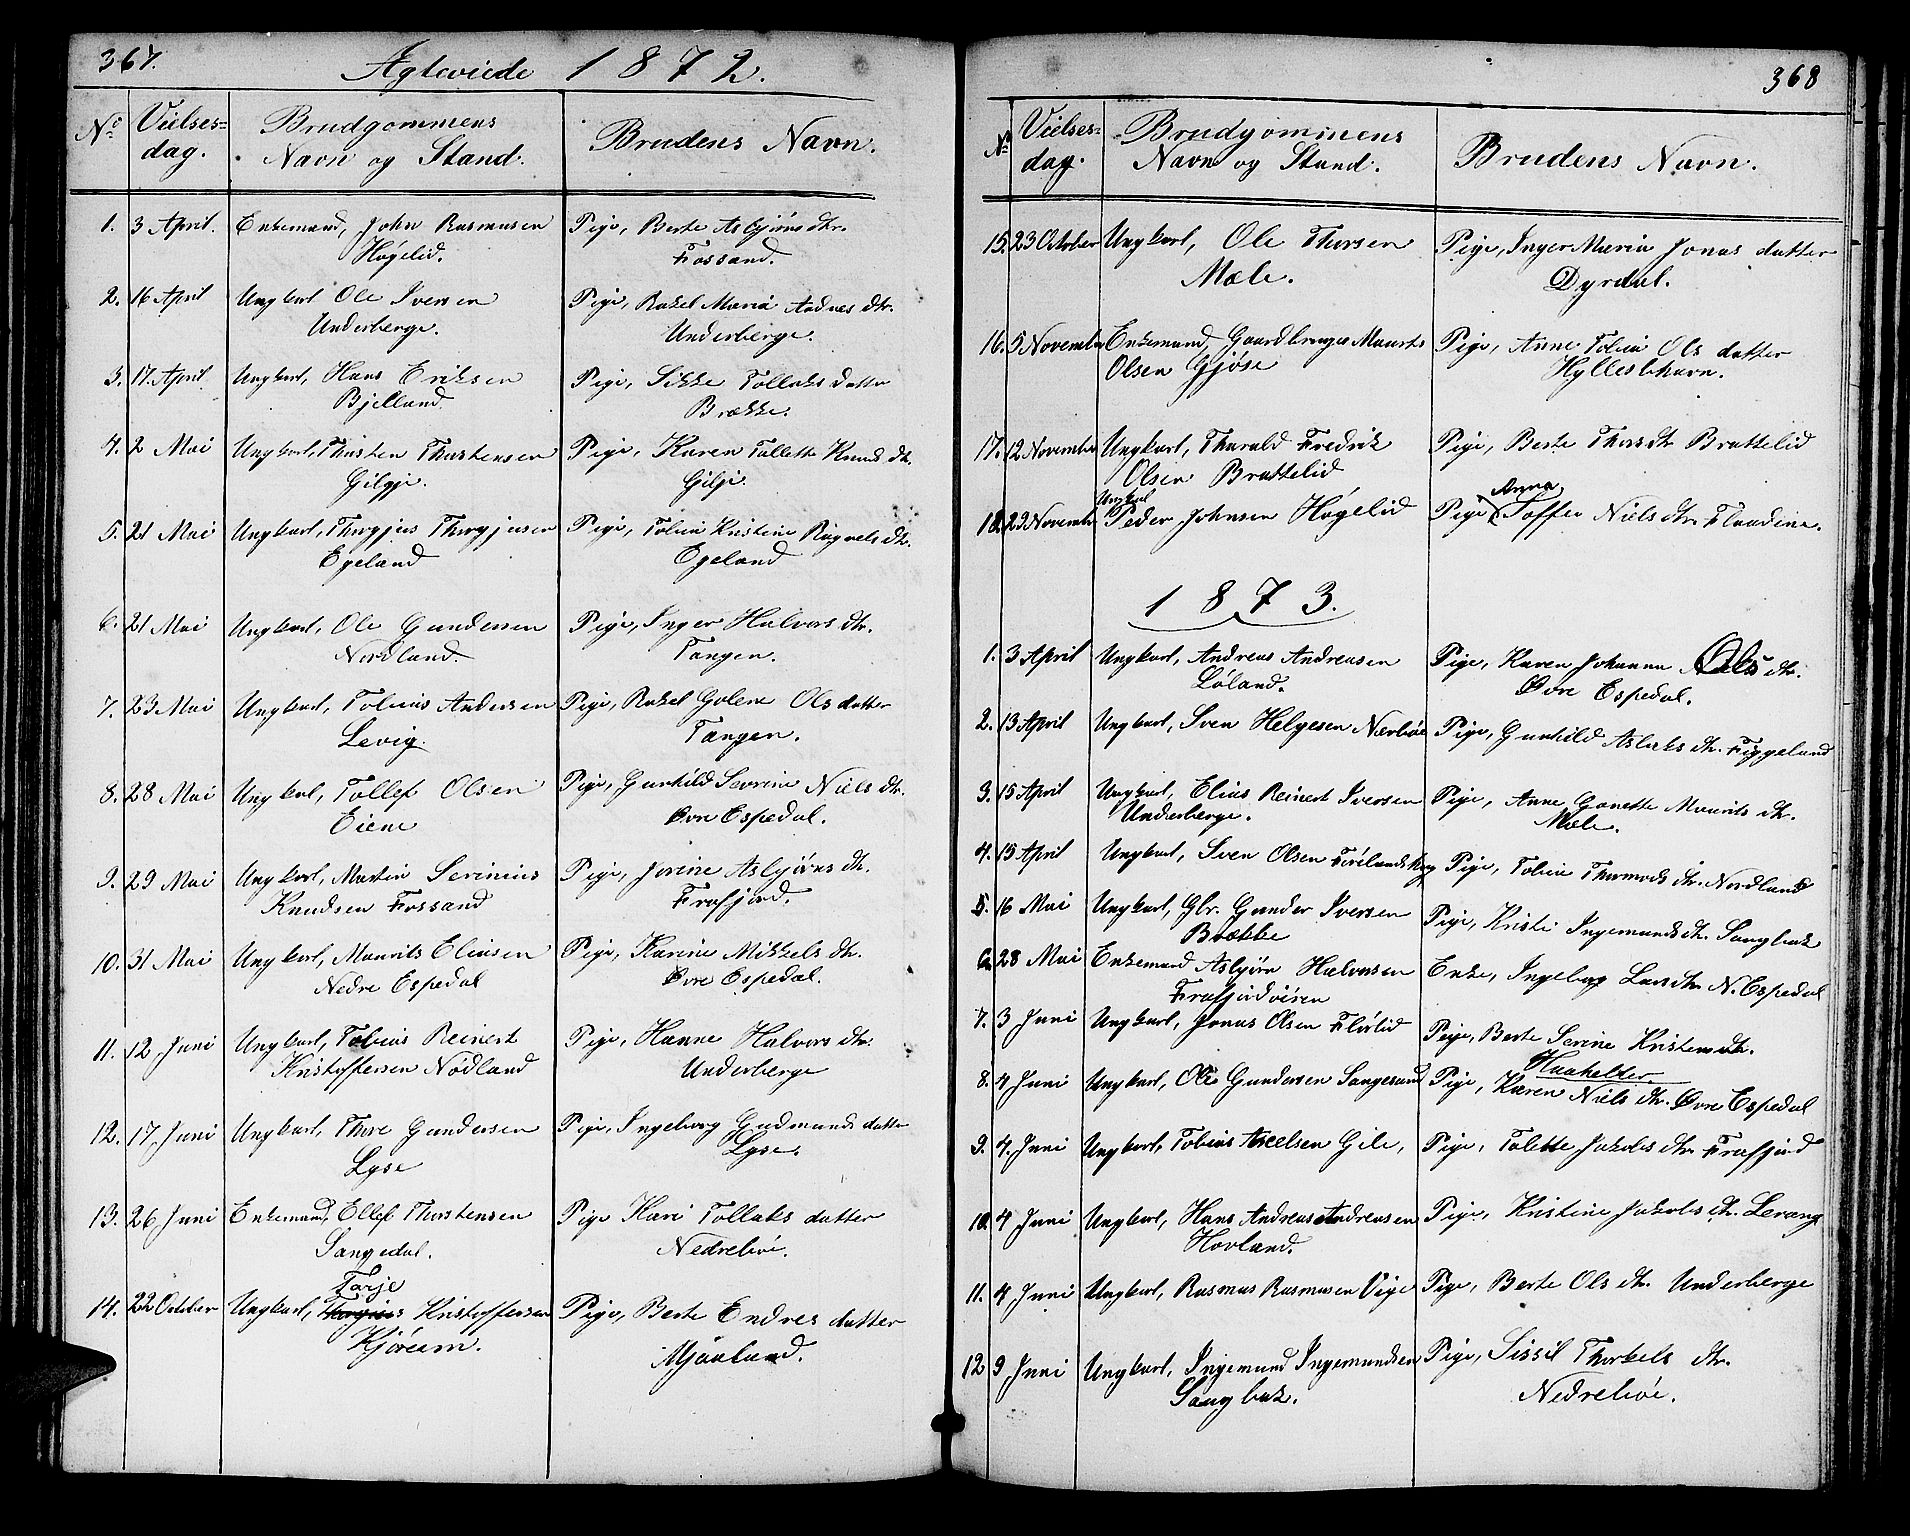 367.
Ægteviede 1872.
No Vielses= dag. Brudgommens Navn og Stand. Brudens Navn.
1. 3 April. Enkemand, John Rasmusen Pige, Berte Asbjörns dtr.
Høgelid. Fossand.
2. 16 April Ungkarl Ole Iversen Pige, Rakel Maria Andreas dtr.
Underberge. Underberge.
3. 17 April Ungkarl, Hans Eriksen Pige, Sikke Tollaks datter
Bjelland. Brække.
4. 2 Mai Ungkarl, Thorsten Thorstensen Pige, Karen Tollette Knuds dtr.
Gilgje. Gilje.
5. 21 Mai Ungkarl, Thorgjus Thorgjusen Pige, Tobia Kristine Ragnvels dtr.
Egeland Egeland
6. 21 Mai Ungkarl, Ole Gundersen Pige, Inger Halvors dtr.
Nordland. Tangen.
7. 23 Mai Ungkarl, Tobias Andersen Pige, Rakel Golene Ols datter
Levig. Tangen.
8. 28 Mai Ungkarl, Tollef Olsen Pige, Gunhild Severine Niels dtr.
Eiene Øvre Espedal.
9. 29 Mai Ungkarl, Martin Serinius Pige, Jorine Asbjörns dtr.
Knudsen Fossand Frafjord.
10. 31 Mai Ungkarl, Maurits Eliasen Pige, Karine Mikkels dtr.
Nedre Espedal Øvre Espedal.
11. 12 Juni Ungkarl, Tobias Reinert Pige, Hanne Halvors dtr.
Kristoffersen Nodland Underberge
12. 17 Juni Ungkarl, Thore Gundersen Pige, Ingeborg Gudmunds datter
Lyse Lyse.
13. 26 Juni Enkemand, Ellef Thorstensen Pige Kari Tollaks datter
Sangedal. Nedrebøe.
Tarje
14. 22 October Ungkarl, Kristoffersen Pige, Berte Endres datter
Kjørum. Mjaaland.
368
No Vielses= dag. Brudgommens Navn og Stand. Brudens Navn.
15. 23 October Ungkarl, Ole Thorsen Pige, Inger Maria Jonas datter
Mæle. Dyrdal.
16. 5 November Enkemand, Gaardbruger Maurits Pige, Anne Tobia Ols datter
Olsen Gjøse Hyllesthavn.
17. 12 November Ungkarl, Tharald Fredrik Pige, Berte Thors dtr Brattelid
Olsen Brattelid
Ungkarl Anna
18. 23 November Peder Johnsen Høgelid Pige Soffie Niels dtr. Flaadine.
1873.
1. 3 April Ungkarl, Andreas Andreasen Pige, Karen Johanna Ols dtr.
Løland. Øvre Espedal.
2. 13 April Ungkarl, Sven Helgesen Nærbøe Pige, Gunhild Aslaks dtr. Figgeland
3. 15 April Ungkarl, Elias Reinert Iversen Pige, Anne Gonette Maurits dtr.
Underberge. Mæle.
4. 15 April Ungkarl, Sven Olsen Pige, Tobia Thormods dtr. Nordland
5. 16 Mai Ungkarl, Gbr. Gunder Iversen Pige, Kristi Ingemunds dtr. Sangbak
Brække
6. 28 Mai Enkemand Asbjörn Halvorsen Enke, Ingeborg Lars dtr. N. Espedal
Frafjordøiren
7. 3 Juni Ungkarl, Jonas Olsen Flörlid Pige, Berte Serine Kristens dtr.
Haahelder.
8. 4 Juni Ungkarl, Ole Gundersen Sangesand Pige, Karen Niels dtr. Øvre Espedal
9. 4 Juni Ungkarl, Tobias Axelsen Gile, Pige, Tolette Jakobs dtr. Frafjord
10. 4 Juni Ungkarl, Hans Andreas Andreasen Pige, Kristine Jakobs dtr. Levang
Hovland.
11. 4 Juni Ungkarl, Rasmus Rasmusen Vige Pige, Berte Ols dtr. Underberge
12 9 Juni Ungkarl, Ingemund Ingemundsen Pige, Sissil Thorkels dtr.
Sangbak. Nedrebøe.